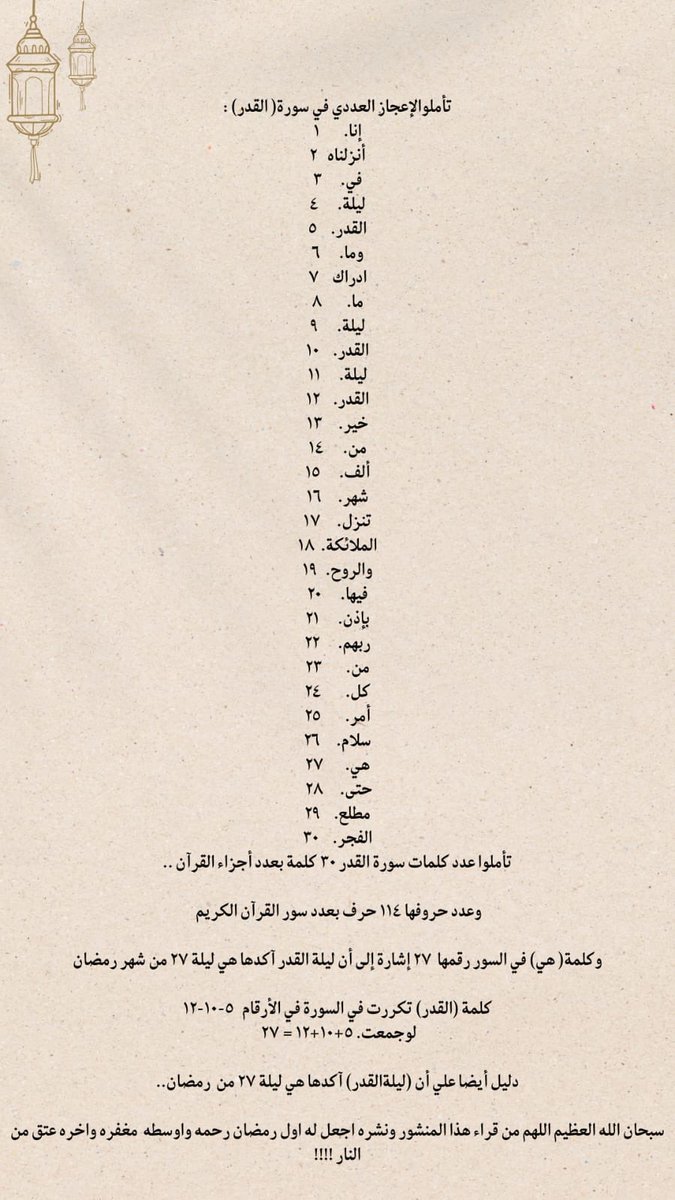 تأملوالإعجاز العددي في سورة( القدر) :
إنا. ١
أنزلناه ٢
في. ٣
ليلة. ٤
القدر. ٥
وما. ٦
ادراك ٧
ما. ٨
ليلة. ٩
القدر. ١٠
ليلة. ١١
القدر. ١٢
خير. ١٣
من. ١٤
ألف. ١٥
شهر. ١٦
تنزل. ١٧
الملائكة. ١٨
والروح. ١٩
فيها. ٢٠
بإذن. ٢١
ربهم. ٢٢
من. ٢٣
كل. ٢٤
أمر. ٢٥
سلام. ٢٦
هي. ٢٧
حتى. ٢٨
مطلع. ٢٩
الفجر. ٣٠
تأملوا عدد كلمات سورة القدر ٣٠ كلمة بعدد أجزاء القرآن ..
وعدد حروفها ١١٤ حرف بعدد سور القرآن الكريم
وكلمة( هي) في السور رقمها ٢٧ إشارة إلى أن ليلة القدر آكدها هي ليلة ٢٧ من شهر رمضان
كلمة (القدر) تكررت في السورة في الأرقام ٥-١٠-١٢
لوجمعت. ٥+١٠+١٢ = ٢٧
دليل أيضا علي أن (ليلةالقدر) آكدها هي ليلة ٢٧ من رمضان..
سبحان الله العظيم اللهم من قراء هذا المنشور ونشره اجعل له اول رمضان رحمه واوسطه مغفره واخره عتق من
النار !!!!